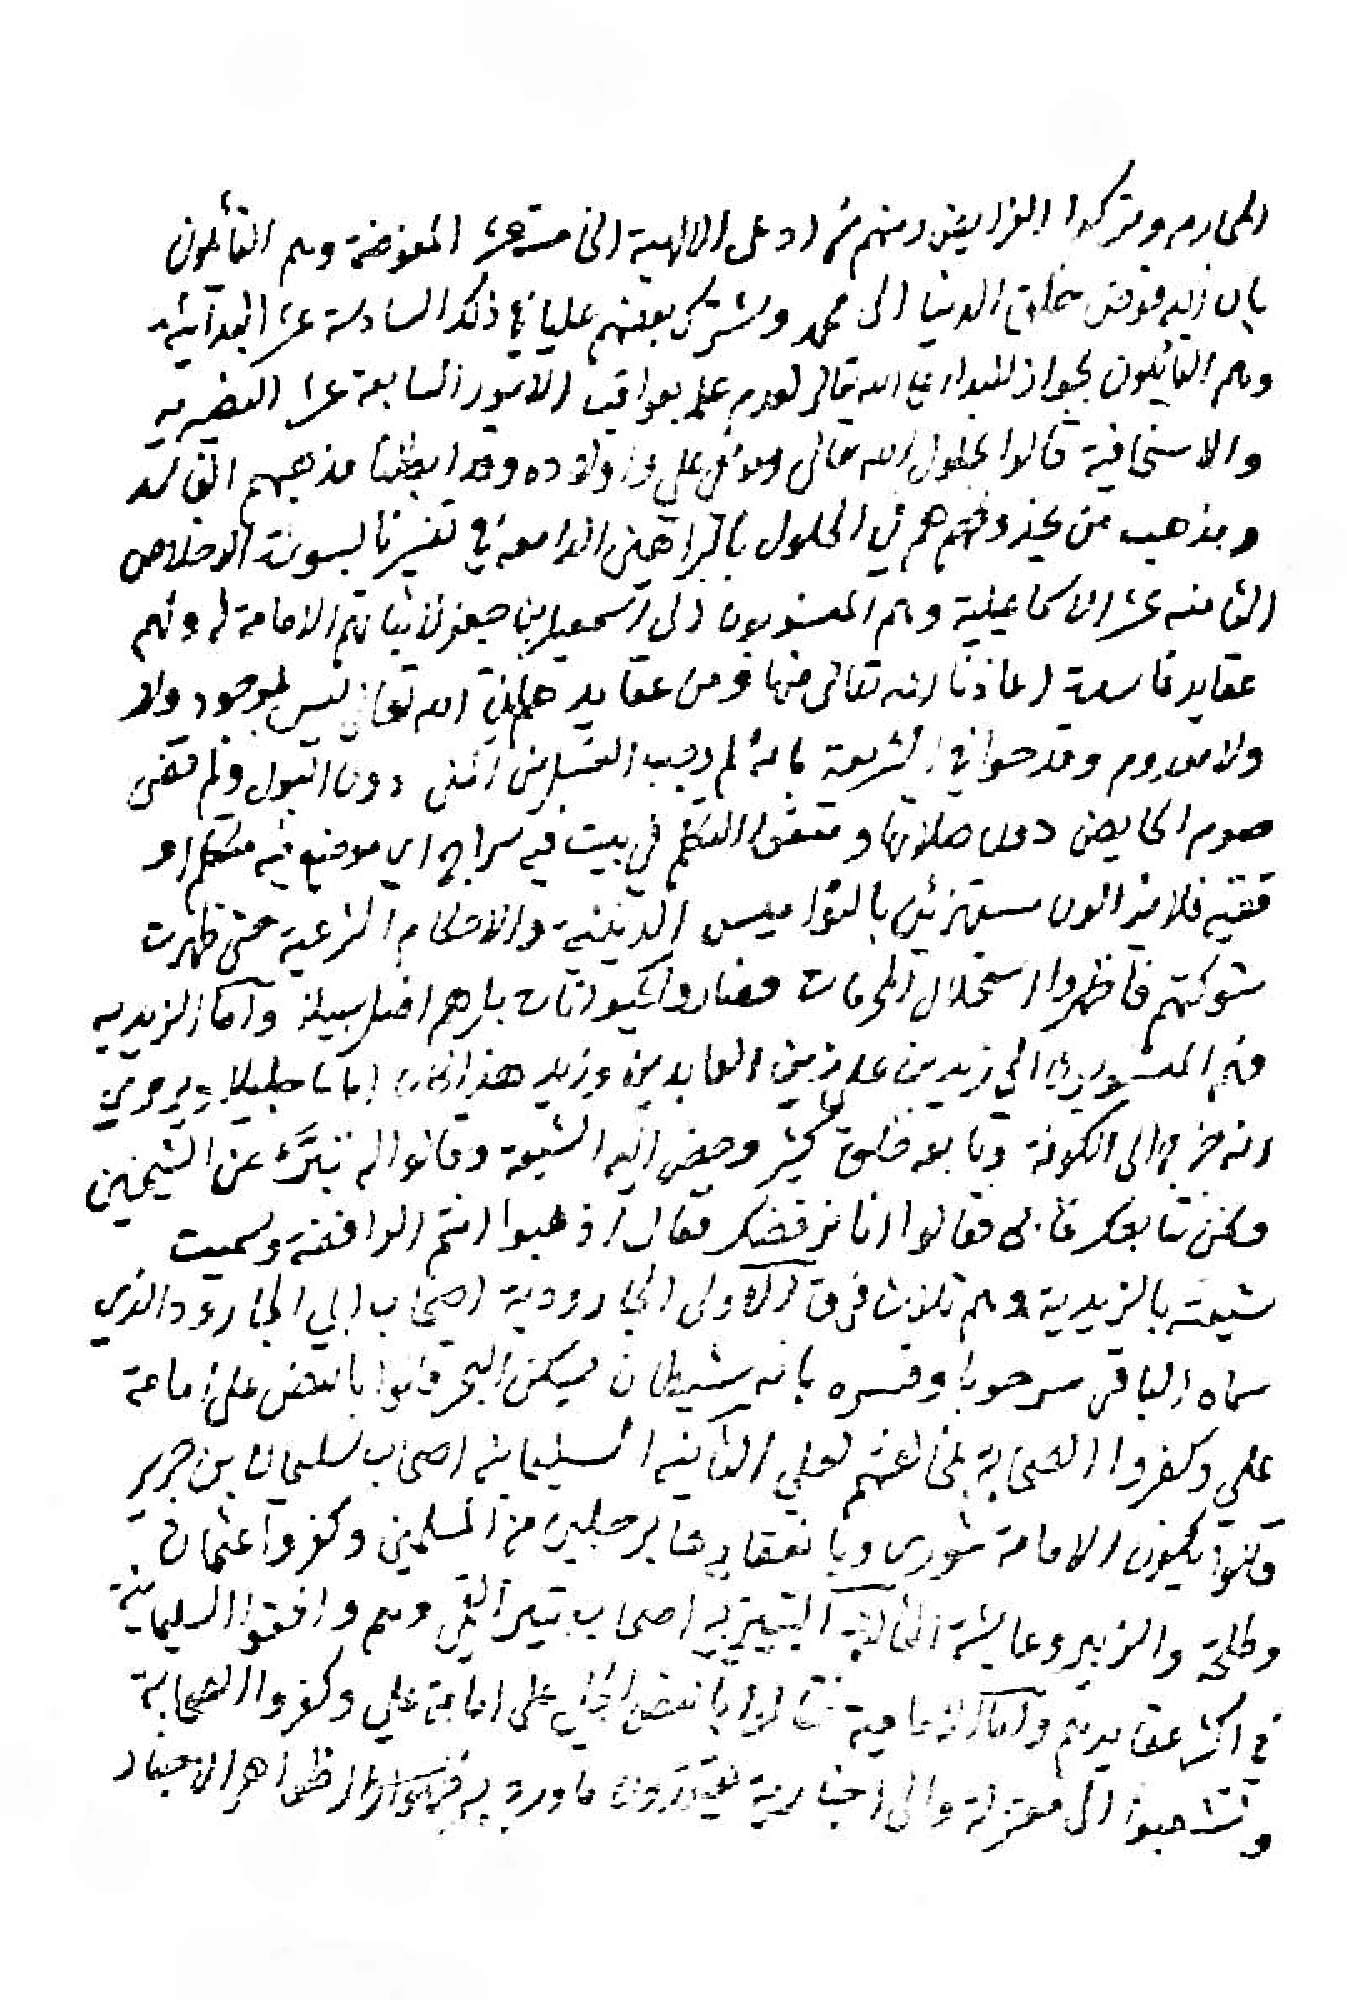 المحارم وتركوا الفرايض ومنهم من ادعى الالهية الخامسة عشر المفوضة وهم القائلون
بان الله فوض خلق الدنيا الى محمد وشرك بعضهم عليا في ذلك السادسة عشر البدائية
وهم القايلون بجواز البداء على الله تعالى لعدم علمه بعواقب الامور السابعة عشر النصيرية
والاسحاقية قالوا بحلول الله تعالى في علي واولاده وقد ابطلنا مذهبهم الفاسد
ومذهب من يحذو حذوهم في الحلول بالبراهين الدامغة في تفسيرنا لسورة الاخلاص
الثامنة عشر الاسماعيلية وهم المنسوبون الى اسمعيل بن جعفر لاثباتهم الامامة له ولهم
عقايد فاسدة اعاذنا الله تعالى منها ومن عقايدهم ان الله تعالى ليس بموجود ولا
ولا معدوم وقدحوا في الشريعة بانه لم وجب الغسل من المني دون البول ولم قضى
صوم الحايض دون صلاتها ومنعوا التكلم في بيت فيه سراج اي موضع فيه متكلم او
فقيه فلا يزالون مستهزئين بالنواميس الدينية والاحكام الشرعية حتى ظهرت
شوكتهم فاظهروا استحلال المحرمات فصاروا كحيوانات بل هم اضل سبيلا واما الزيدية
فهم المنسوبون الى زيد بن علي زين العابدين وزيد هذا كان اماما جليلا ويروى
انه خرج الى الكوفة وتابعه خلق كثير وحضر اليه الشيعة وقالوا له تبرّأ عن الشيخين
ونحن نتابعك فابى فقالوا انا نرفضك فقال اذهبوا انتم الرافضة وسميت
شيعته بالزيدية وهم ثلاث فرق الاولى الجارودية اصحاب ابي الجارود الذي
سماه الباقر سرحوبا وفسره بانه شيطان يسكن البحر قالوا بالنص على امامة
علي وكفروا الصحابة بمخالفتهم لعلي الثانية السليمانية اصحاب سليمان بن جرير
قالوا بكون الامامة شورى وبانعقادها برجلين من المسلمين وكفروا عثمان
وطلحة والزبير وعايشة الثالثة البتيرية اصحاب بتير الثومي وهم وافقوا السليمانية
في اكثر عقايدهم واما الامامية فقالوا بالنص الجلي على امامة علي وكفروا الصحابة
وتشعبوا الى معتزلة والى اخبارية يعتقدون ما ورد به ظواهر الاخبار